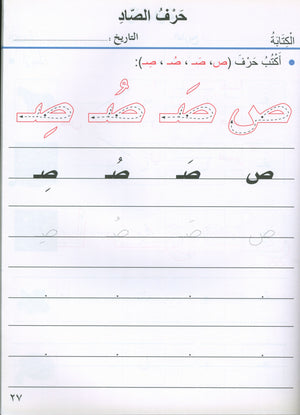 حَرْفُ الصّادِ
الْكِتَابَةُ التاريخ :
• أَكْتُبُ حَرْفَ (ص، صَـ ، صُـ ، صِـ):
ص صَـ صُـ صِـ
ص صَـ صُـ صِـ
ص صَـ صُـ صِـ
٢٧